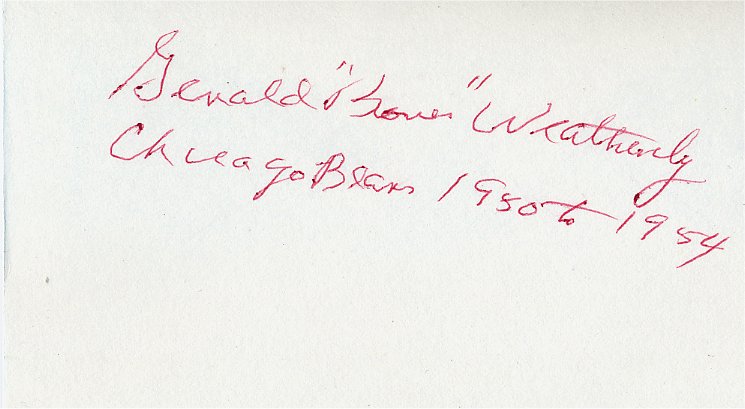 Gerald "Bones" Weatherly
Chicago Bears 1950 to 1954